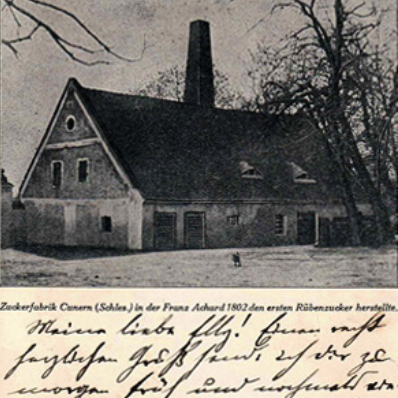 Zuckerfabrik Cunern (Schles.) in der Franz Achard 1802 den ersten Rübenzucker herstellte.
Meine liebe Elly! Einen recht
herzlichen Gruß sende ich dir zu
morgen früh und nochmals